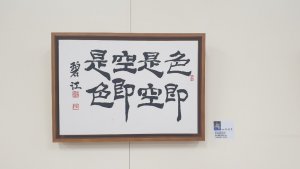 色即
是空
空即
是色
碧江